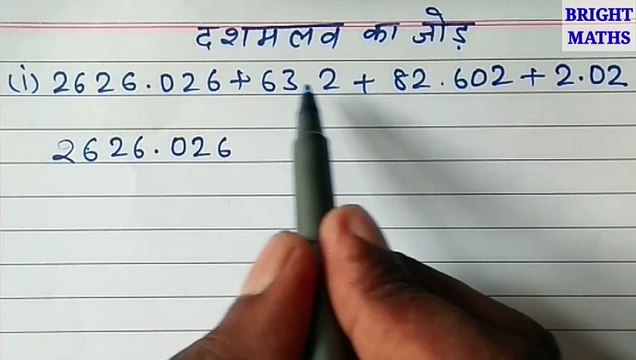 BRIGHT
MATHS
दशमलव का जोड़
(i) 2626.026 + 63.2 + 82.602 + 2.02
2626.026